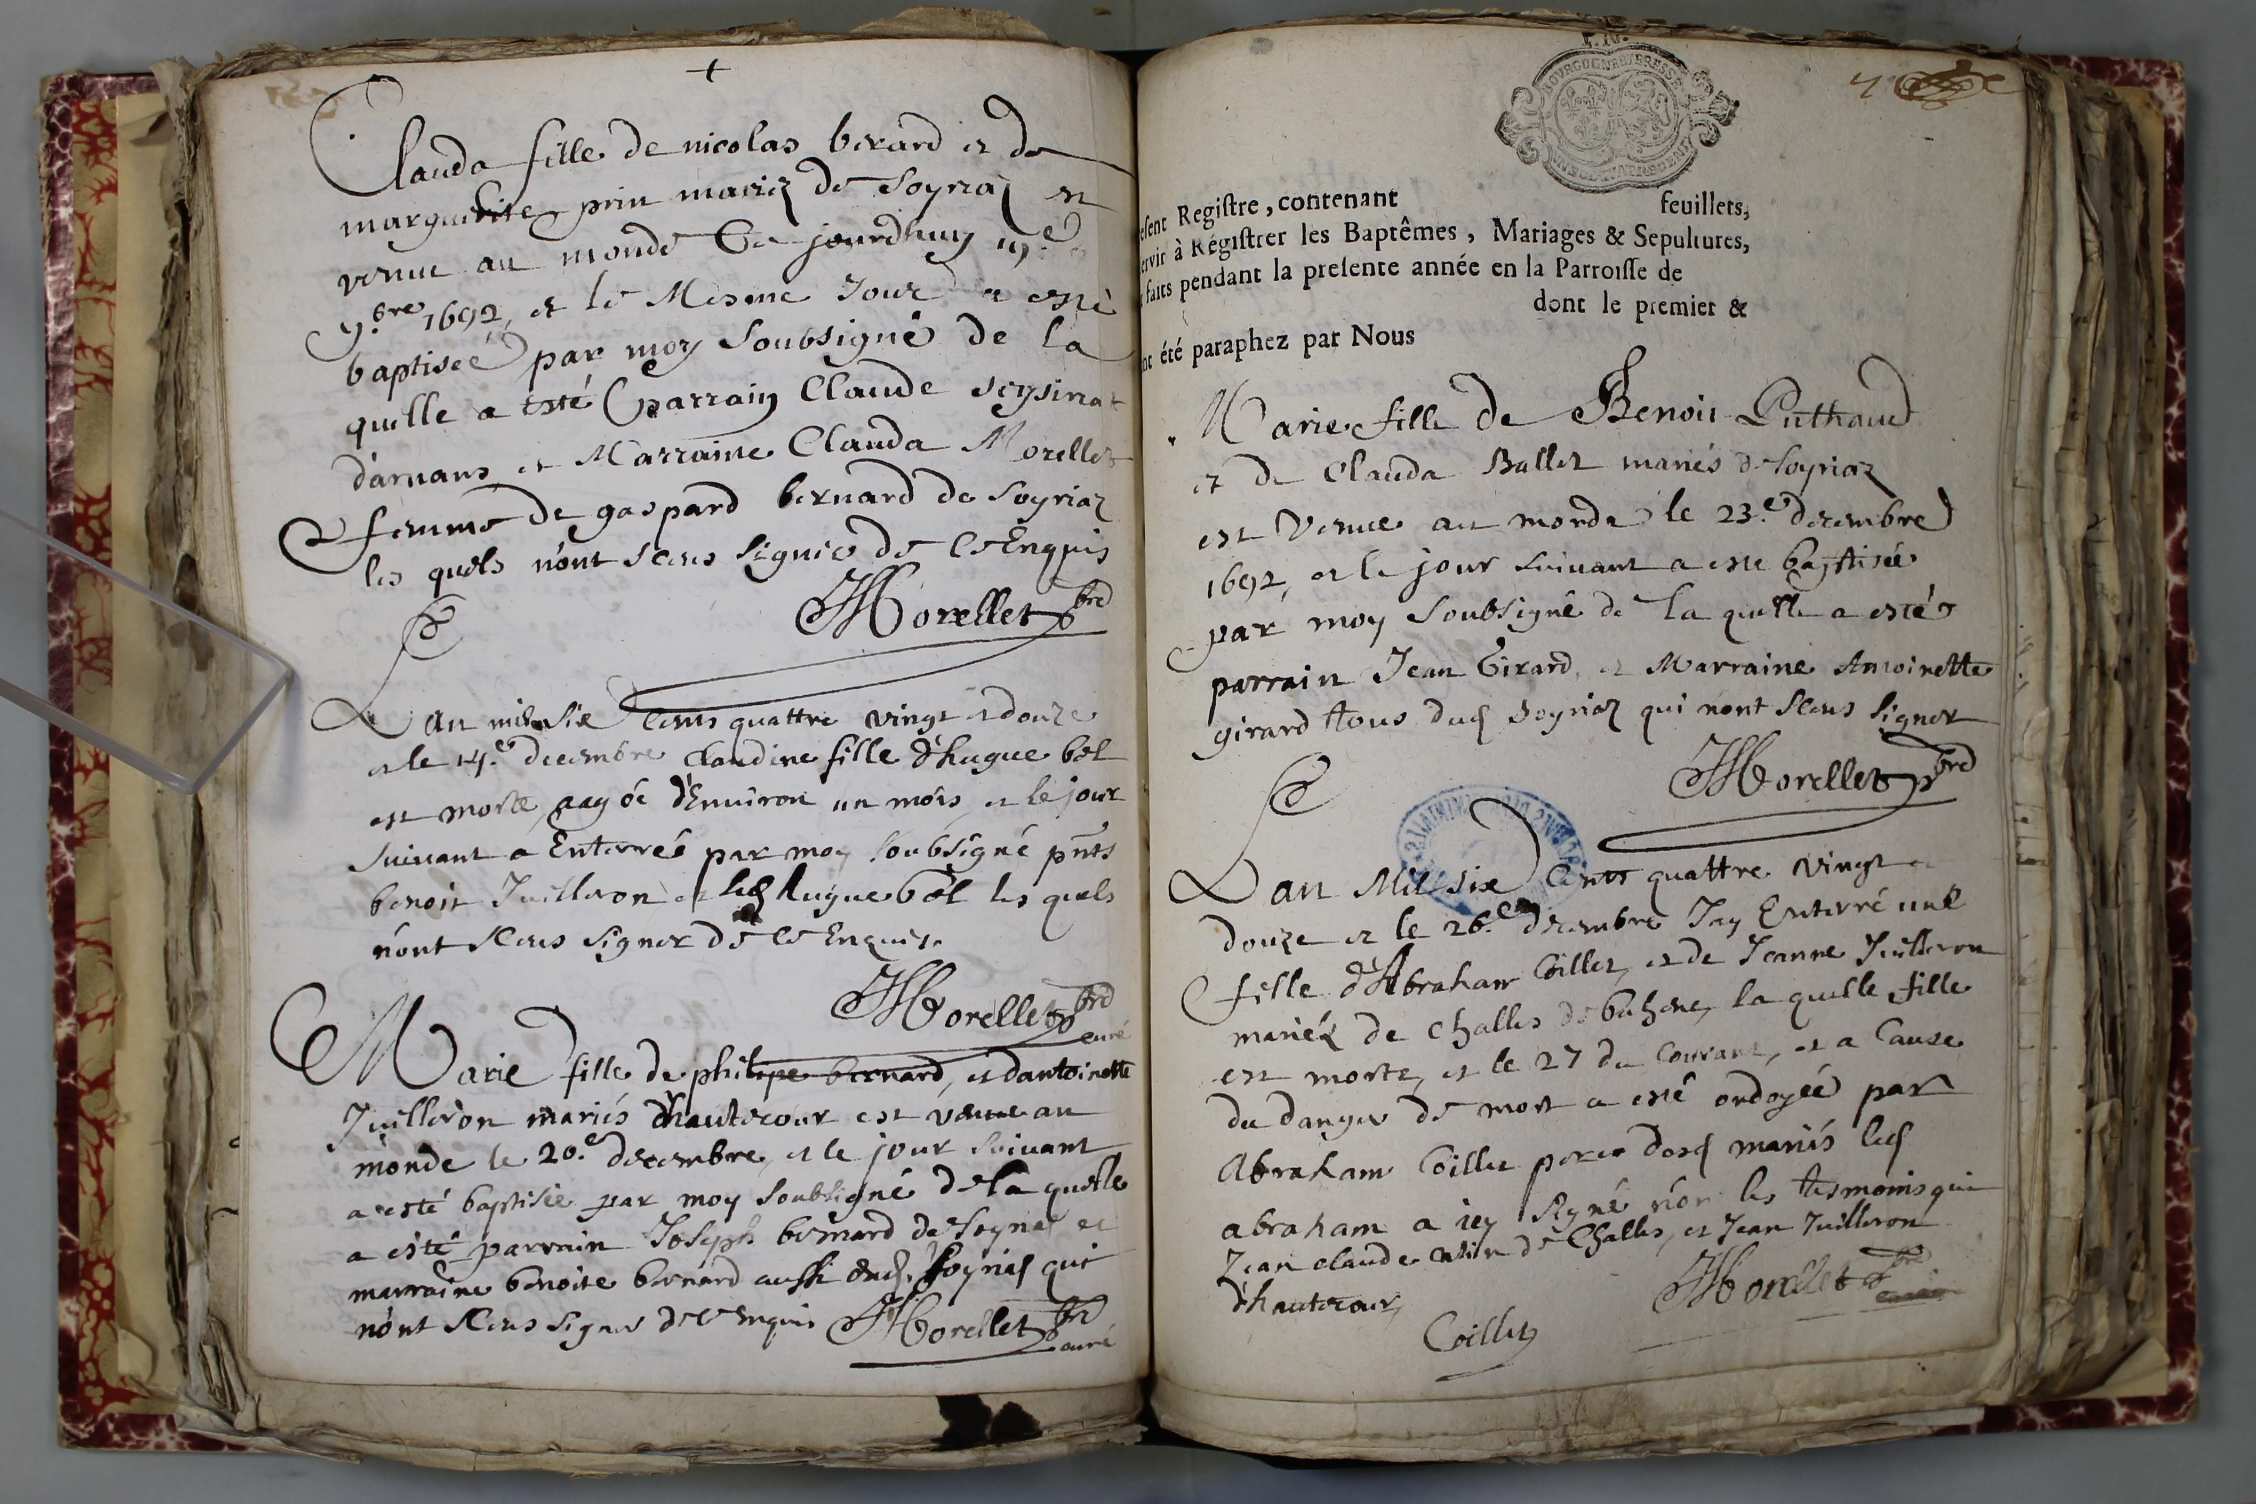 Clauda fille de nicolas berard et de
marguerite prin mariez de Soyriaz est
venue au monde Ce jourdhuy
9.bre 1692, et le Mesme Jour a esté
baptiseé par moy Soubsigné de la
quelle a esté parrain Claude seysinat
d'arnans et Marraine Clauda Morellet
femme de gaspard bernard de Soyriaz
les quels n'ont sceus signer de ce Enquis
Morellet pbre
L'an mil six Cents quattre vingt et douze
et le 14.e decembre Claudine fille d'hugue bol
est morte aagée d'Environ un mois, et le jour
suivant a Enterreé par moy soubsigné pnts
benoit Juilleron et led hugue bol les quels
n'ont sceus signer de ce Enquis.
Morellet pbre
curé
Marie fille de philipe bernard, et dantoinette
Juilleron mariés d'hautecour est venue au
monde le 20.e decembre, et le jour suivant
a esté baptisée par moy soubsigné de la quelle
a esté parrain Joseph bernard de Soyriaz et
marraine benoite bernard aussi dud. Soyriaz qui
n'ont sceus signer de ce enquis Morellet pbre
curé
BOURGOGNE BRESSE
esent Registre, contenant feuillets,
ervir à Régistrer les Baptêmes, Mariages & Sepultures,
faits pendant la presente année en la Parroisse de
dont le premier &
nt été paraphez par Nous
Marie fille de Benoit Puthaud
et de Clauda Ballet mariés de Soyriaz
est Venue au monde le 23.e decembre
1692, et le jour suivant a esté baptisée
par moy Soubsigné de la quelle a esté
parrain Jean Girard, et Marraine Antoinette
girard tous dud Soyriaz qui n'ont sceus signer
Morellet pbre
L'an Mil six Cents quattre vingt et
douze et le 26.e decembre Jay Enterré une
fille d'Abraham Coillet, et de Jeanne Juilleron
mariéz de Challes de bohene, la quelle fille
est morte, et le 27 du Courant, et a Cause
du danger de mort a esté ondoyée par
Abraham Coillet pere desd mariés led
abraham a icy signé non les tesmoins qui
Jean claude de Challes, et Jean Juilleron
d'hautecour,
Morellet pbre
Coillet